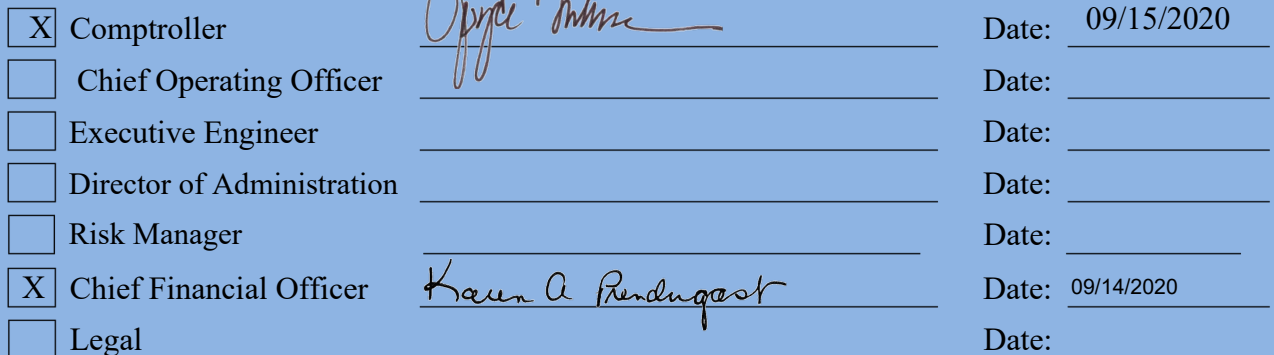 X Comptroller Date: 09/15/2020
Chief Operating Officer Date:
Executive Engineer Date:
Director of Administration Date:
Risk Manager Date:
X Chief Financial Officer Karen A Prendergast Date: 09/14/2020
Legal Date: